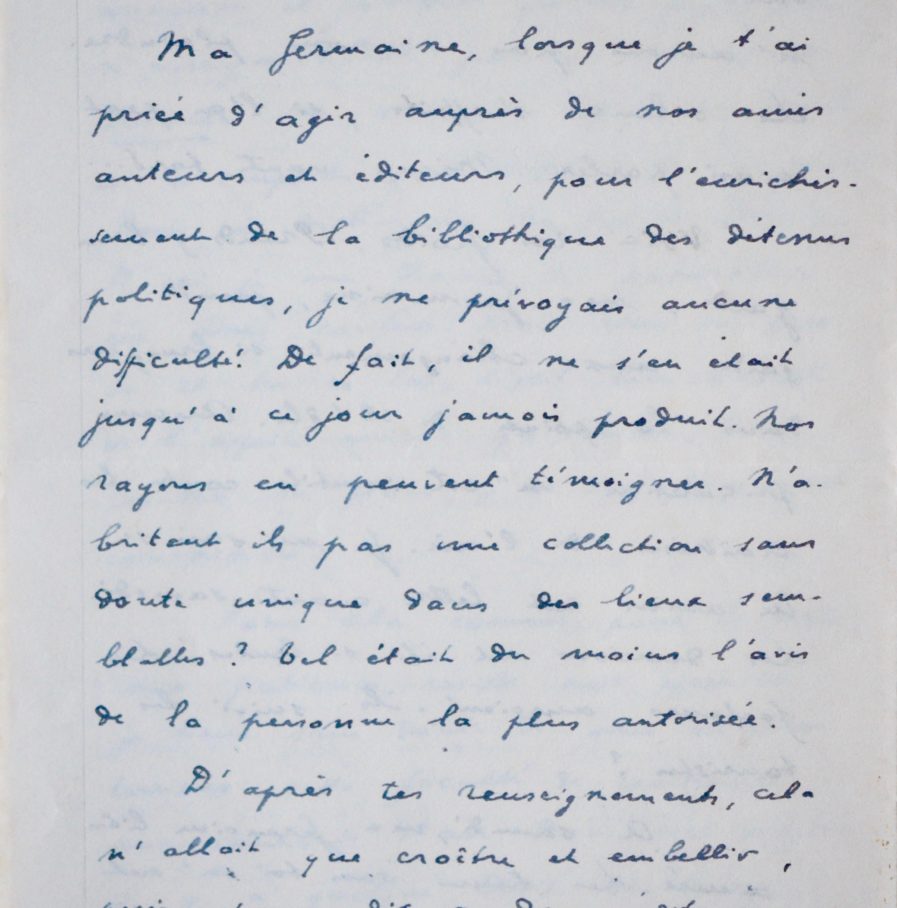 Ma Germaine, lorsque je t'ai
priée d'agir auprès de nos amis
auteurs et éditeurs, pour l'enrichis-
sement de la bibliothèque des détenus
politiques, je ne prévoyais aucune
difficulté. De fait, il ne s'en était
jusqu'à ce jour jamais produit. Nos
rayons en peuvent témoigner. N'a-
britent ils pas une collection sans
doute unique dans des lieux sem-
blables ? Tel était du moins l'avis
de la personne la plus autorisée.
D'après tes renseignements, cela
n'allait que croître et embellir,